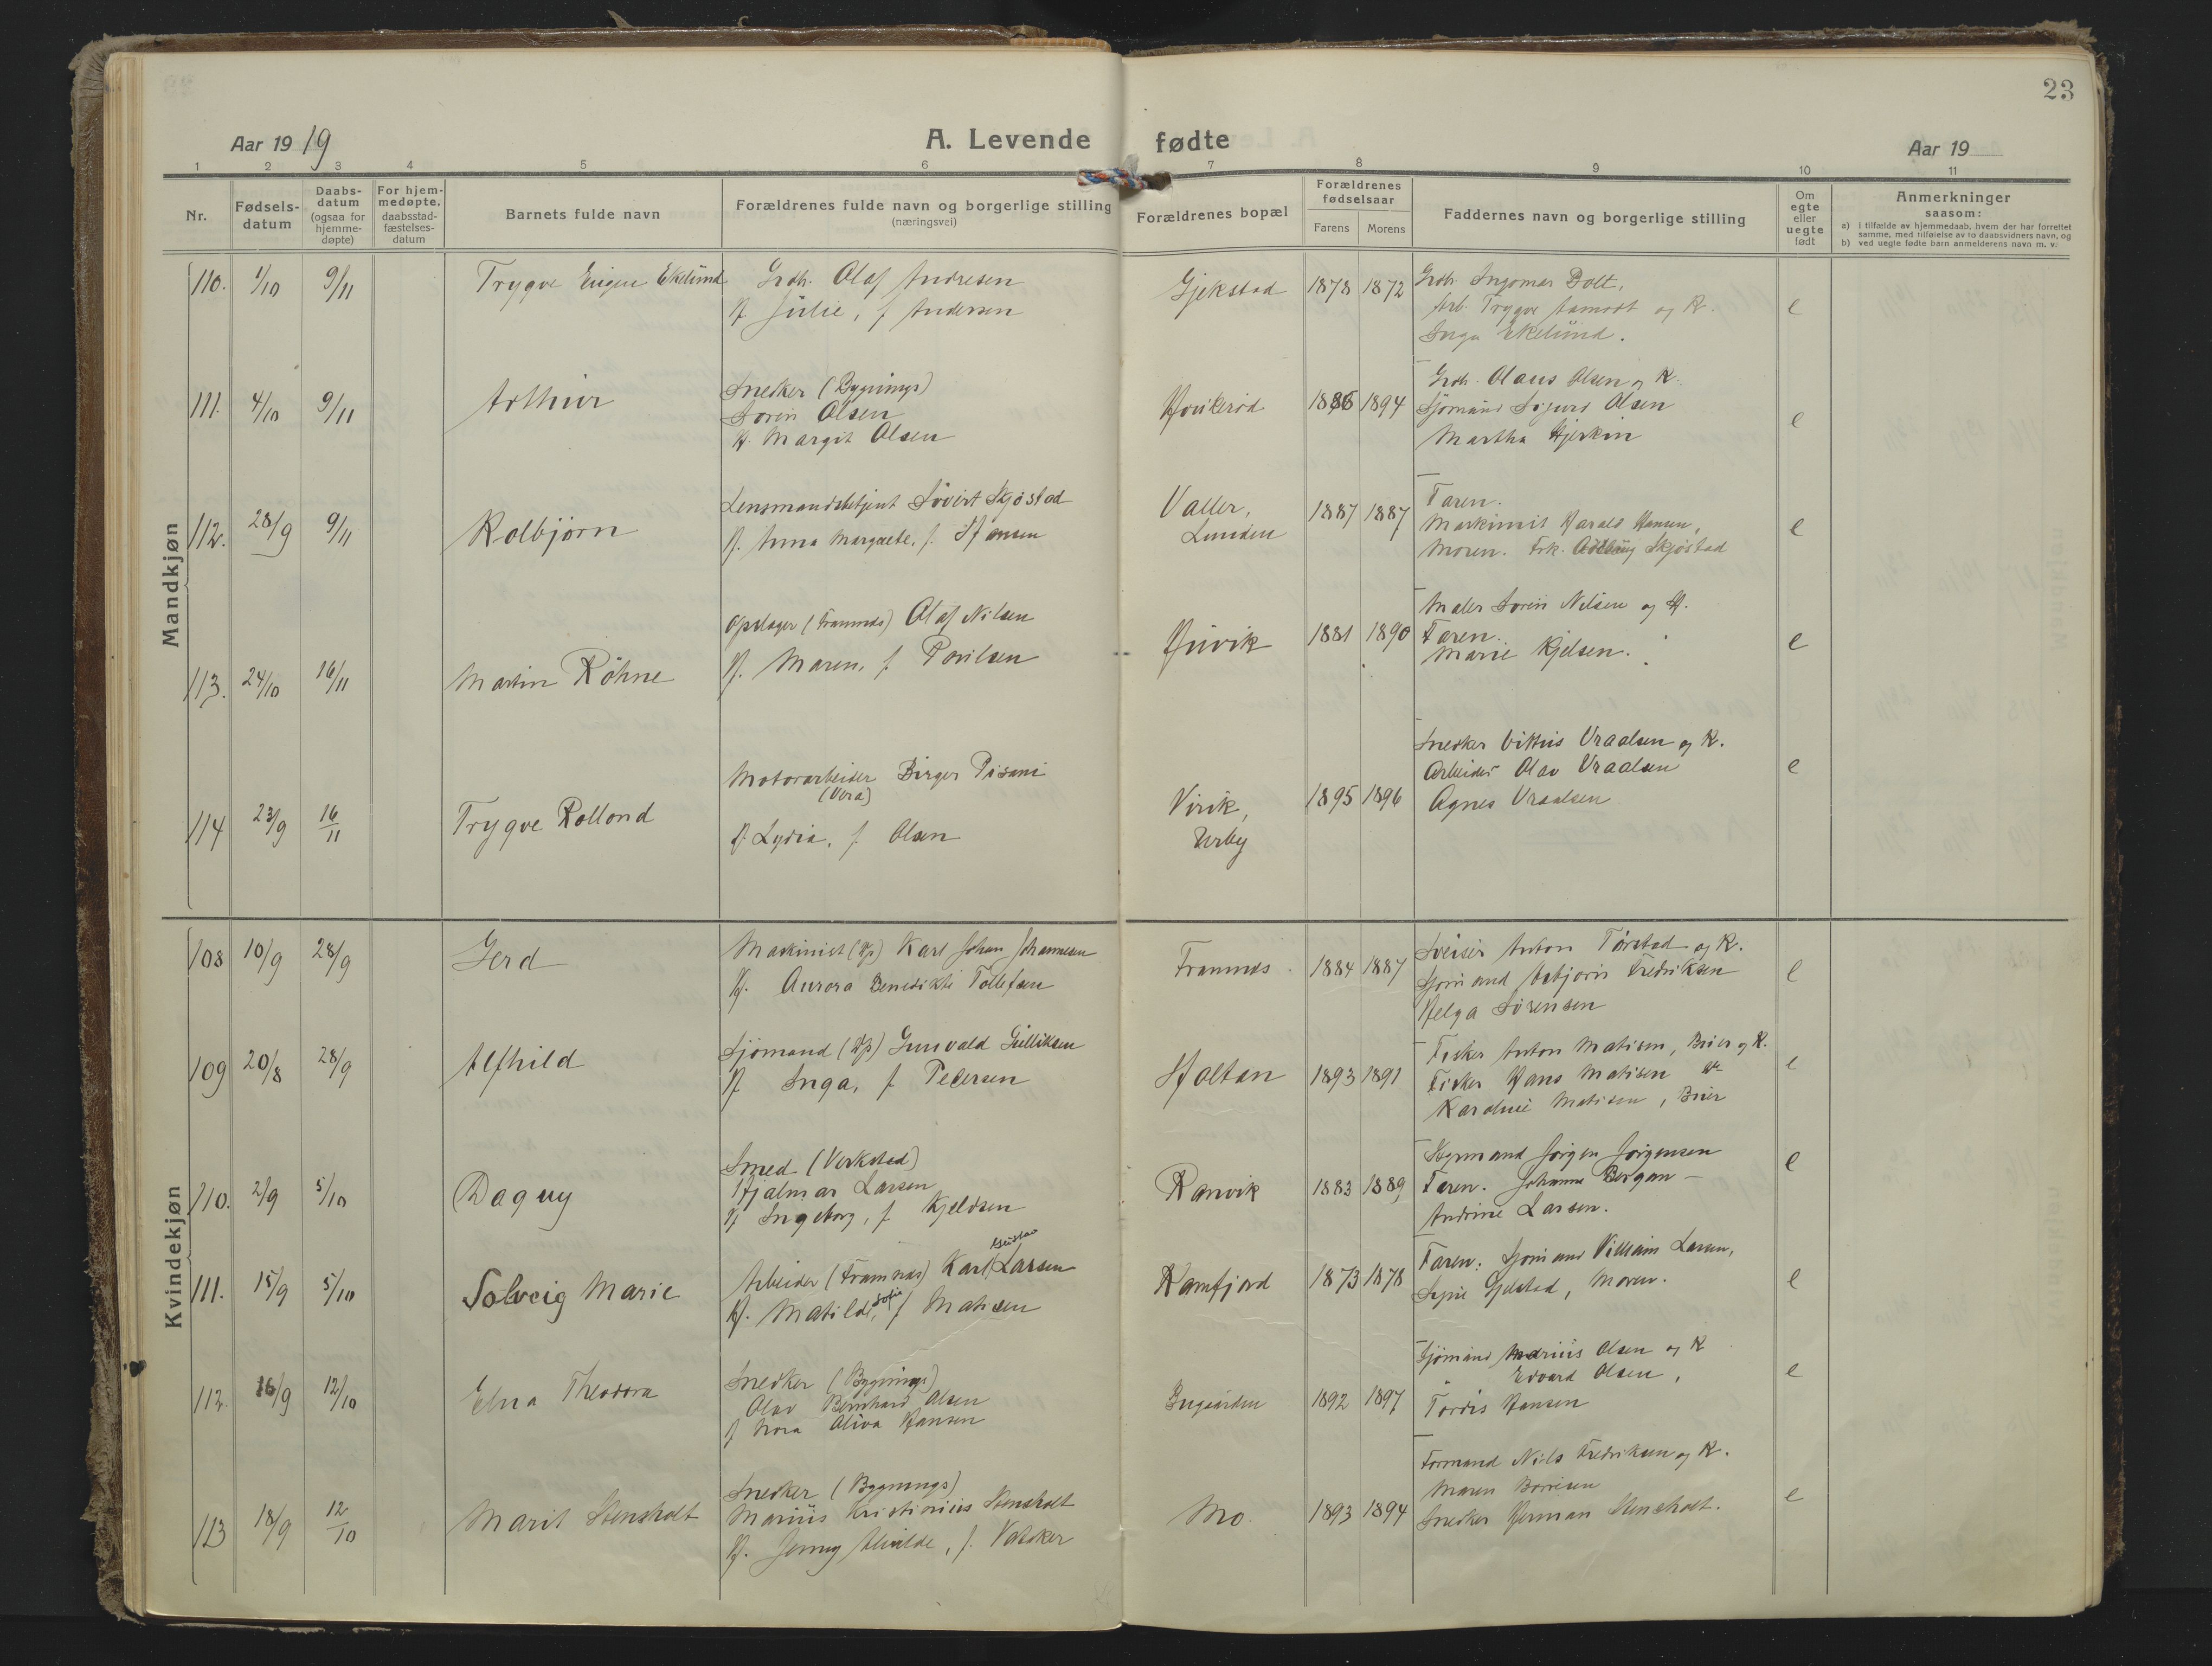 23
Aar 1919
A. Levende fødte
Aar 19
1 2 3 4 5 6 7 8 9 10 11
Nr.
Fødsels-
datum
Daabs-
datum
(ogsaa for
hjemme-
døpte)
For hjem-
medøpte,
daabsstad-
fæstelses-
datum
Barnets fulde navn
Forældrenes fulde navn og borgerlige stilling
(næringsvei)
Forældrenes bopæl
Forældrenes
fødselsaar
Farens Morens
Faddernes navn og borgerlige stilling
Om
egte
eller
uegte
født
Anmerkninger
saasom:
a) i tilfælde av hjemmedaab, hvem der har forrettet
samme, med tilføielse av to daabsvidners navn, og
b) ved uegte fødte barn anmelderens navn m. v.
Mandkjøn
110. 1/10 9/11 Trygve Eugen Ekelund
Grdb. Olaf Andresen
H. Julie, f. Andersen
Gjekstad 1878 1872
Grdb. Ingomar Bolt,
Arb. Trygve Aamodt og K.
Inga Ekelund.
e
111. 4/10 9/11 Arthur
Snedker (Bygnings)
Sorin Olsen
H. Margit Olsen
1886 1894
Grdb. Olaus Olsen og K.
Sjömand Sigurd Olsen
Martha
e
112. 28/9 9/11 Kolbjörn
Lensmandsbetjent Sövert Skjöstad
H. Anna Margrete, f. Hansen
Valler,
Lunden
1887 1887
Faren.
Maskinist Harald Hansen,
Moren. Frk. Skjöstad
e
113. 24/10 16/11 Martin Röhne
Opslager (Framnæs) Olaf Nilsen
H. Maren, f. Poulsen
Huvik 1881 1890
Maler Sorin Nilsen og H.
Faren.
Marie Kjelsen.
e
114 23/9 16/11 Trygve Rollond
Motorarbeider Birger Pisani
(Vera)
H. Lydia, f. Olsen
Virik,
Verby
1895 1896
Snedker Vitus Vraalsen og K.
Arbeider Olav Vraalsen
Agnes Vraalsen
e
Kvindekjøn
108 10/9 28/9 Gerd
Maskinist (Hp) Karl Johan Johannesen
H. Aurora Benedikte Tollefsen
Framnes 1884 1887
Sveiser Anton Törstad og K.
Sjömand Asbjörn Fredriksen
Helga Sörensen
e
109 20/8 28/9 Alfhild
Sjömand (Hp) Gunvald Gulliksen
H. Inga, f. Pedersen
Holtan 1893 1891
Fisker Anton Matisen, Brier og K.
Fisker Hans Matisen
Karoline Matisen, Brier
e
110. 2/9 5/10 Dagny
Smed (Verksted)
Hjalmar Larsen
H. Ingeborg, f. Kjeldsen
Ranvik 1883 1889
Styrmand Jörgen Jörgensen
Faren. Johanne Bergan –
Andrine Larsen.
e
111. 15/9 5/10 Solveig Marie
Arbeider (Framnæs) Karl Gustav Larsen
H. Matilde Sofie, f. Matisen
Kamfjord 1873 1878
Faren. Sjömand Villiam Larsen,
Signe Gjelstad, Moren.
e
112. 16/9 12/10 Elna Theodora
Snedker (Bygnings)
Olav Bernhard Olsen
H Nora Oliva Hansen
1892 1897
Sjömand Marius Olsen og K
" Edvard Olsen,
Tordis Hansen
e
113 18/9 12/10 Marit Stensholt
Snedker (Bygnings)
Marius Kristinius Stensholt
H. Jenny Alvilde, f. Vatåker
Mo. 1893 1894
Formand Nils Fredriksen og K.
Maren Borresen
Snedker Herman Stensholt.
e